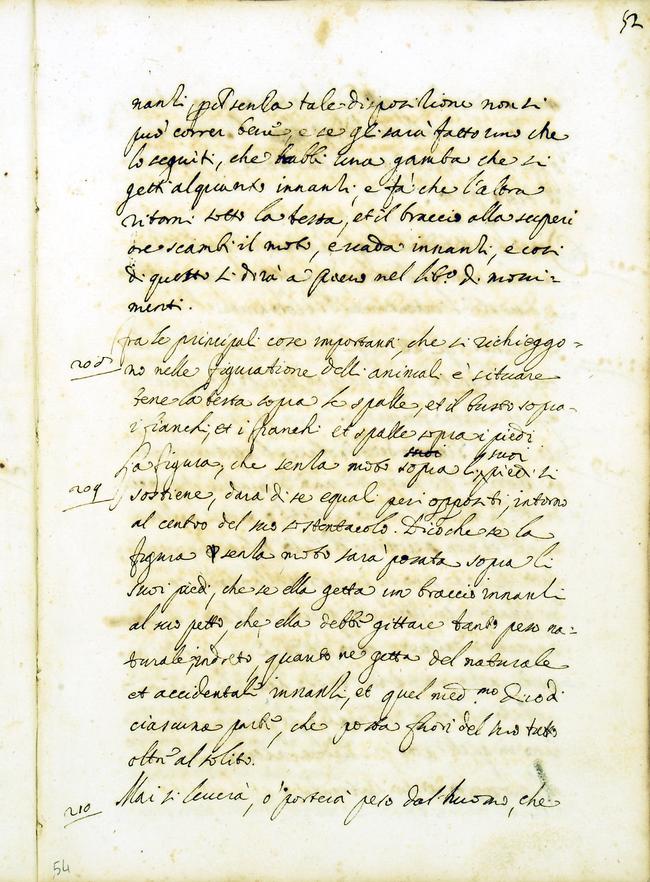 52
nanti, p[er] senza tale dispositione non si
può correr bene, e se gli sarà fatto uno che
lo seguiti, che habbi una gamba che si
getti alquanto innanti, e fà che l'altra
ritorni sotto la testa, et il braccio alla superi
ore scambi il moto, e vada innanti, e così
di questo si dirà a pieno nel lib.o di movi-
menti.
208 fra le principali cose importanti, che si richieggo-
no nelle figuratione delli animali è situare
bene la testa sopra le spalle, et il busto sopra
i fianchi, et i fianchi et spalle sopra i piedi
209 La figura, che senza moto sopra li suoi piedi si
sostiene, darà di se equali pesi oppositi intorno
al centro del suo sostentacolo. Dico che se la
figura senza moto sarà posata sopra li
suoi piedi, che se ella getta un braccio innanti
al suo petto, che ella debbe gittare tanto peso na-
turale indreto, quanto ne getta del naturale
et accidentale innanti, et quel med.mo dico di
ciascuna parte, che posta fuori del suo tutto
oltre al solito.
210 Mai si leverà, o' porterà peso dal huomo, che
54